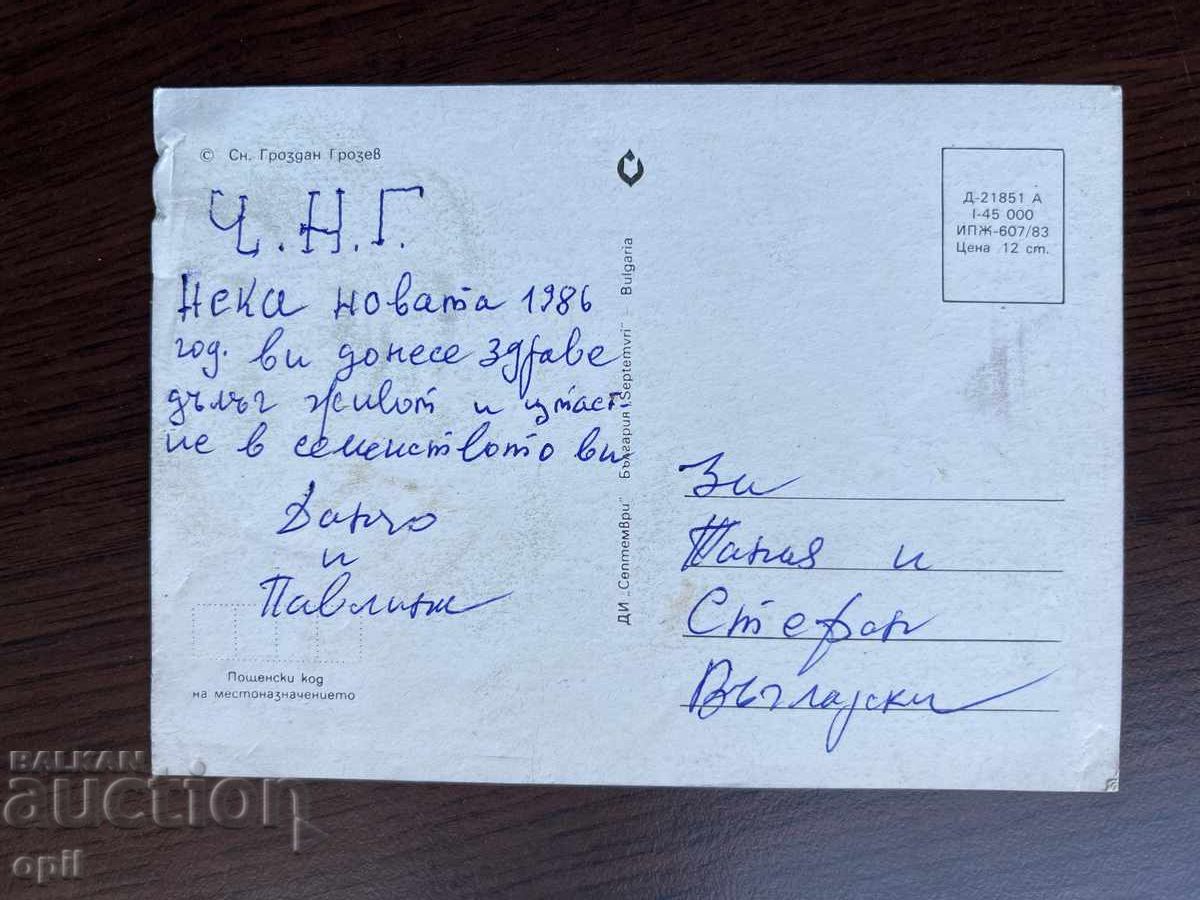 © Сн. Гроздан Грозев
Ч.Н.Г.
Нека новата 1986
год. ви донесе здраве
дълъг живот и щаст-
ие в семенството ви
Данчо
и
Пощенски код
на местоназначението
ДИ „Септември" България „Septemvri" – Bulgaria
Д-21851 А
I-45 000
ИПЖ-607/83
Цена 12 ст.
За
Таня и
Стефан
BALKAN
auction
opil